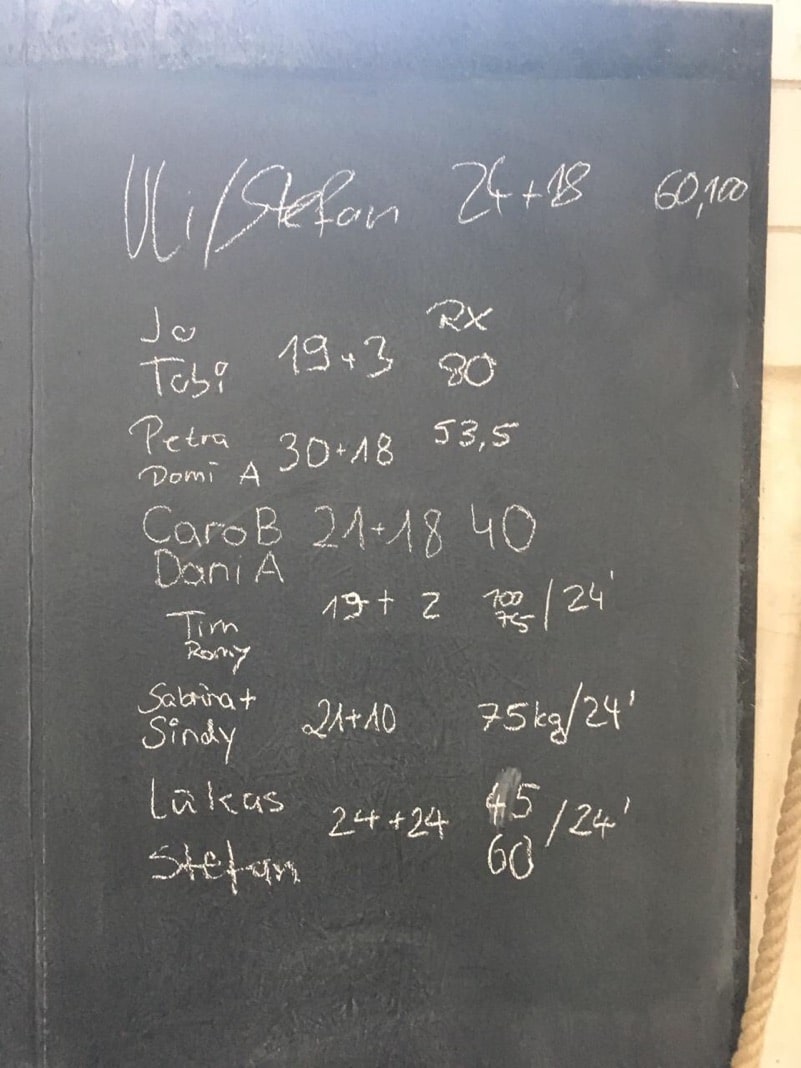 Uli/Stefan 24+18 60,100
Jo RX
Tobi 19+3 80
Petra 30+18 53,5
Domi A
Caro B 21+18 40
Dani A
19+2 100/24'
Tim 75
Romy
Sabrina+
Sindy 21+10 75kg/24'
Lukas 24+24 45/24'
Stefan 60